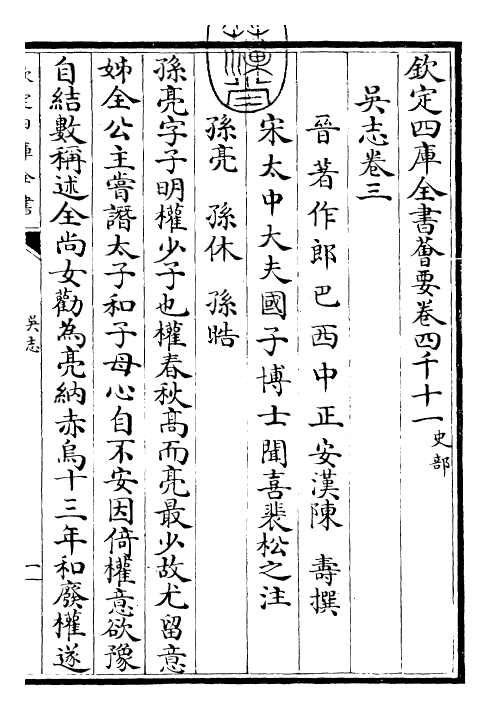 欽定四庫全書薈要卷四千十一 史部
吳志卷三
晉著作郎巴西中正安漢陳 壽撰
宋太中大夫國子博士聞喜裴松之注
孫亮 孫休 孫晧
孫亮字子明權少子也權春秋髙而亮最少故尤留意
姊全公主嘗譖太子和子母心自不安因倚權意欲豫
自結數稱述全尚女勸為亮納赤烏十三年和廢權遂
欽定四庫全書
吳志